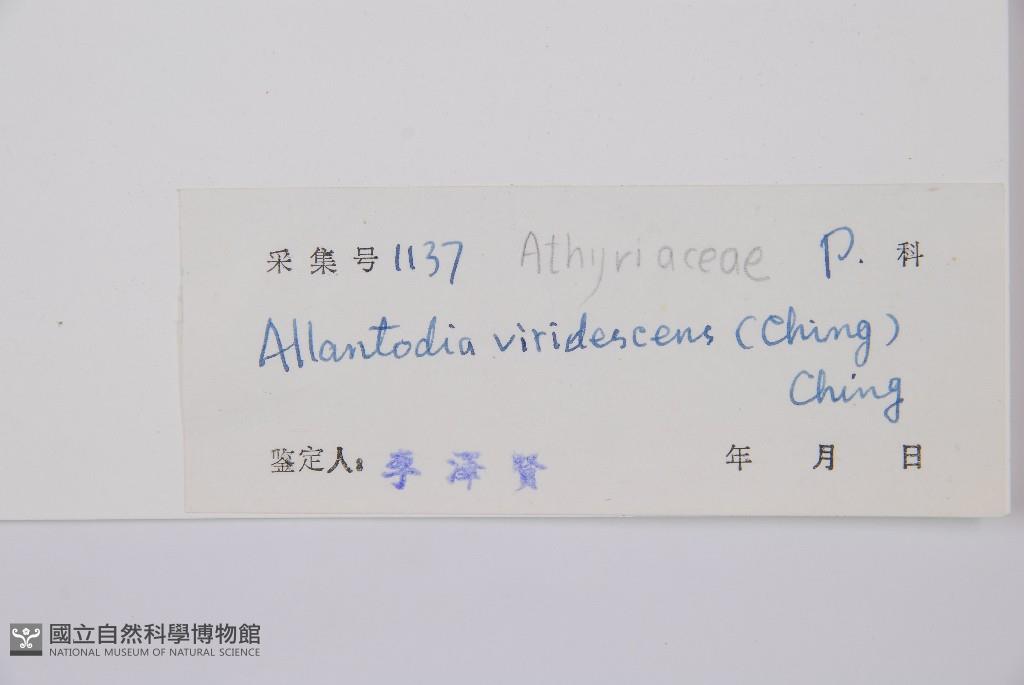 采集号 1137 Athyriaceae P. 科
Allantodia viridescens (Ching)
Ching
鉴定人: 李泽贤 年 月 日
國立自然科學博物館
NATIONAL MUSEUM OF NATURAL SCIENCE